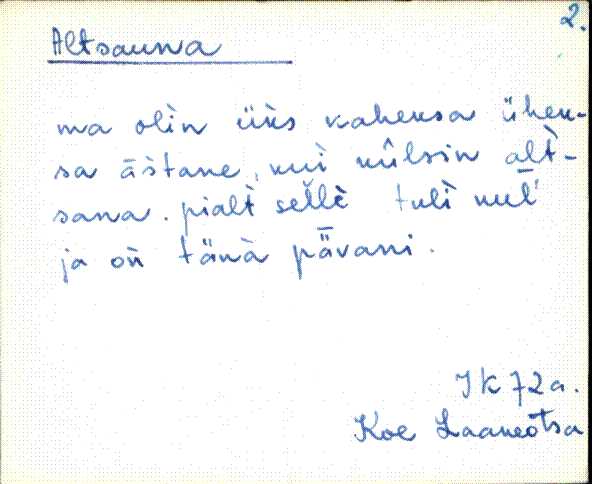 2.
Altsauna
ma olìn üìs kahensa ühen-
sa āštane, kui kûlsin alt̀-
sana. pialt̀ sellè tulì kuĺ
ja oǹ tänà pǟvani.
J K 72a.
Koe Laaneotsa